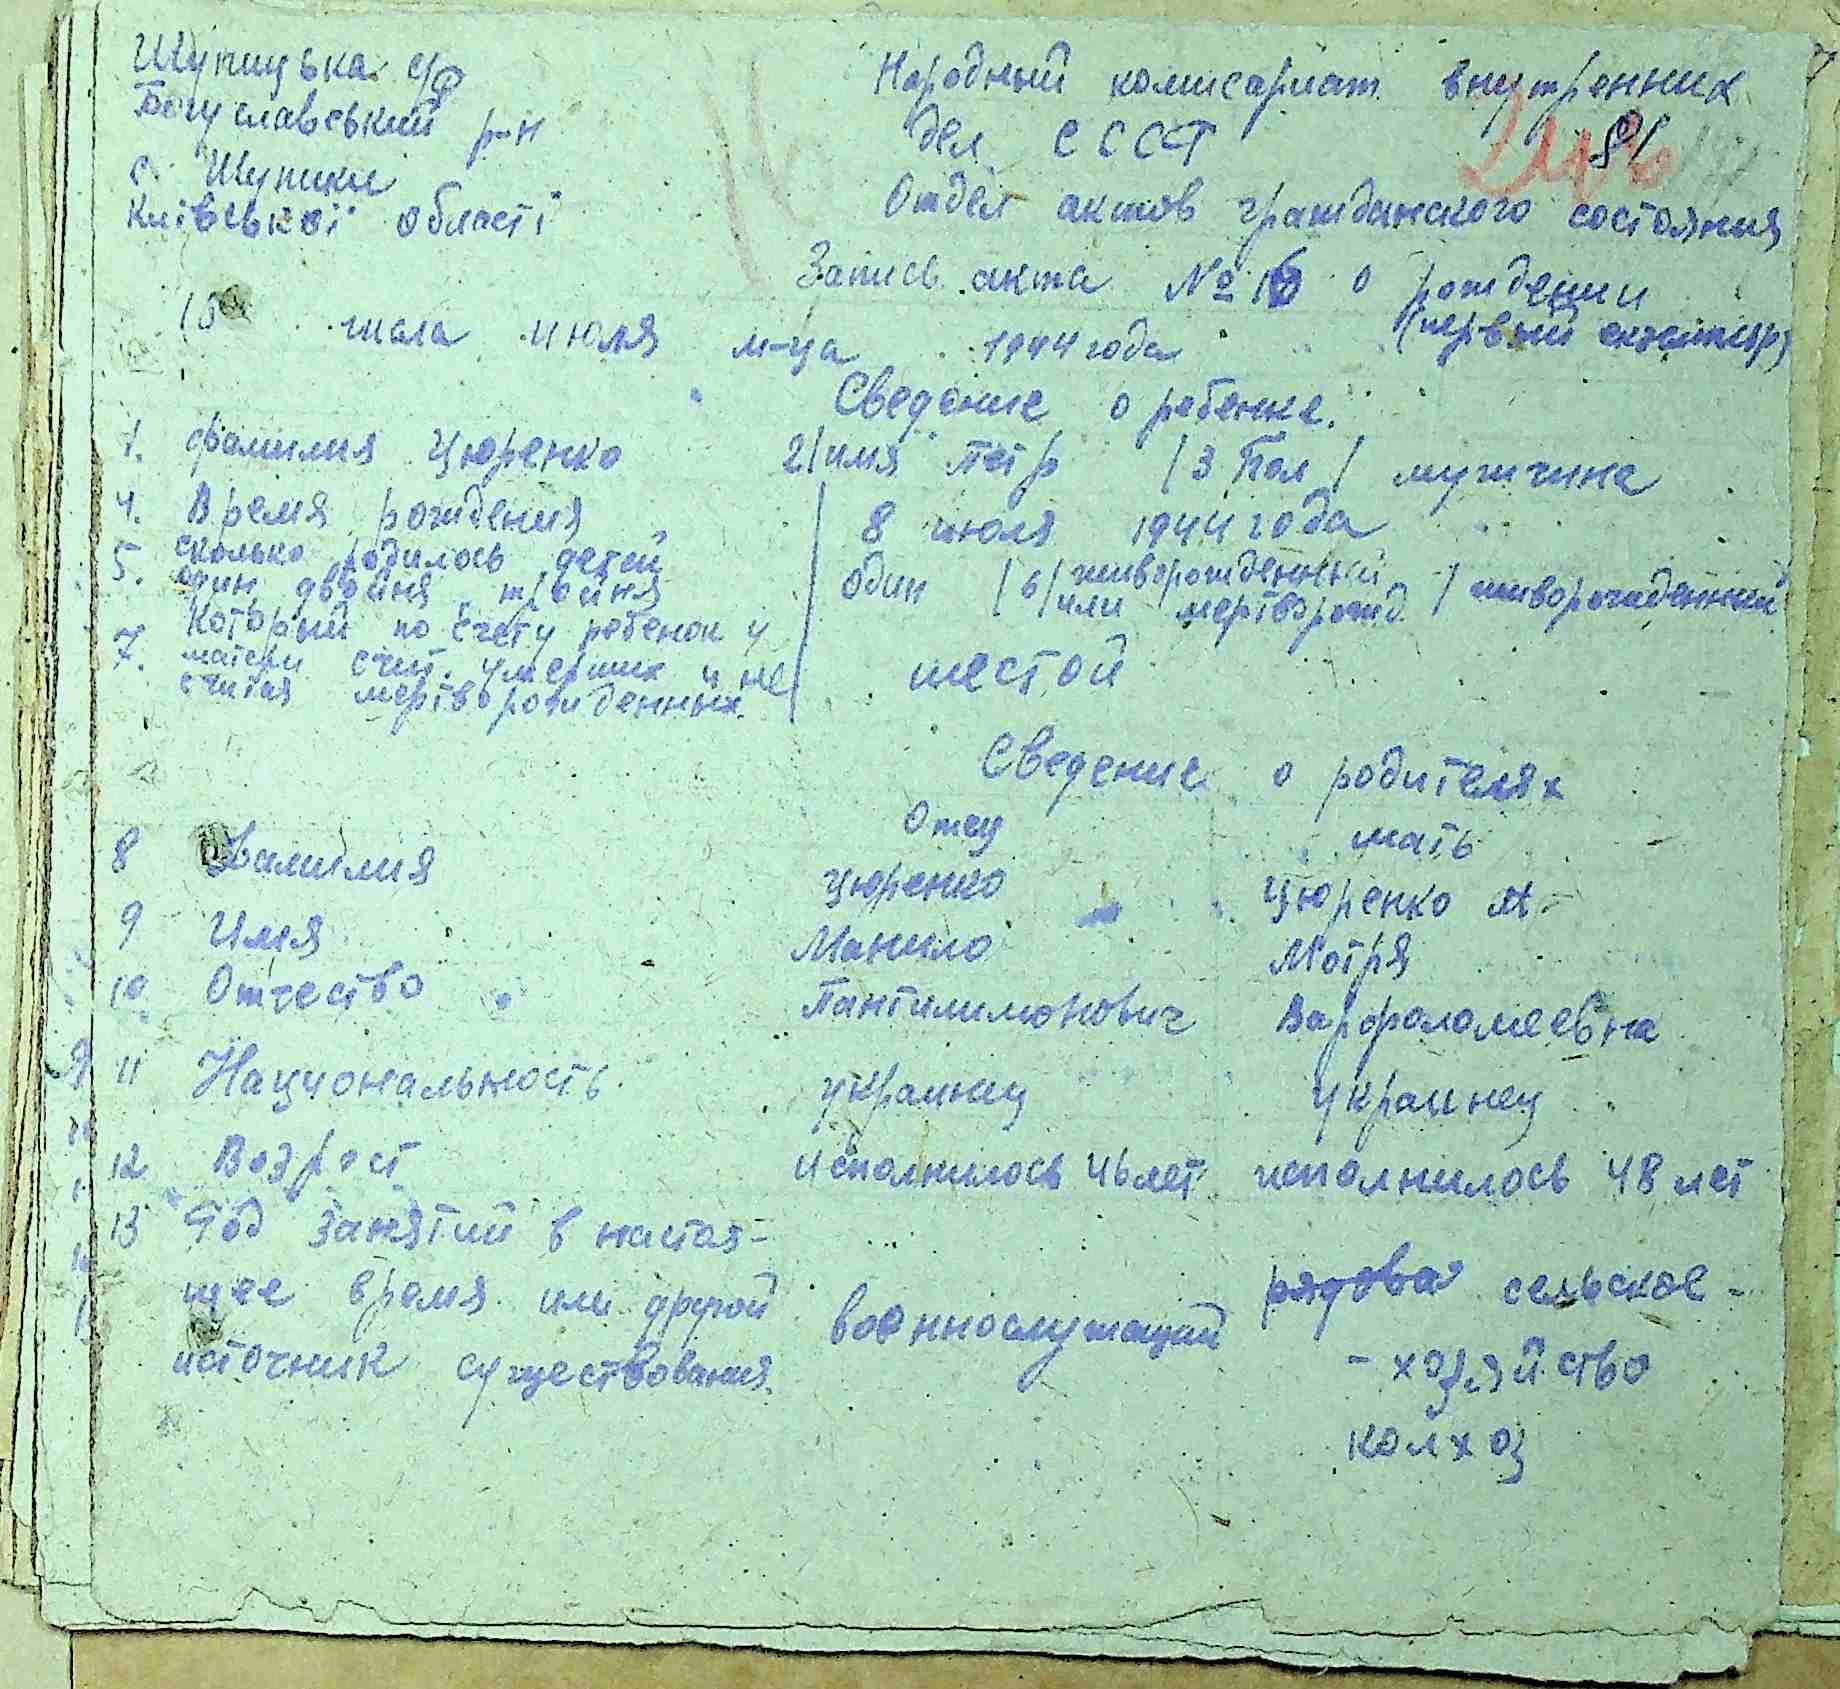 Шупицька с/р
Богуславський р-н
с. Шупики
Київської області
Народный комисариат внутренних
дел СССР
81
Отдел актов гражданского состояния
Запись акта № 16 о рождении
(первый екземпляр)
15 числа июля м-ца 1944 года
Сведение о ребенке.
1. фамилия Цюренко 2/ имя Петр /3 Пол/ мужчина
4. Время рождения 8 июля 1944 года
5. сколько родилось детей один, двойня, тройня один /6/ живорожденный или мертворожд. / живорожденный
7. Который по счету ребенок у
матери счит. умерших и не
считая мертворожденных. шестой
Сведение о родителях
Отец мать
8 Фамилия Цюренко Цюренко М
9 Имя Манило Мотря
10 Отчество Пантилимонович Варфоломеевна
11 Национальность украинец украинец
12 Возрост исполнилось 46 лет исполнилось 48 лет
13 Род занятий в настоя-
щее время или другой военнослужащий рядовая сельское-
источник существования. -хозяйство
колхоз